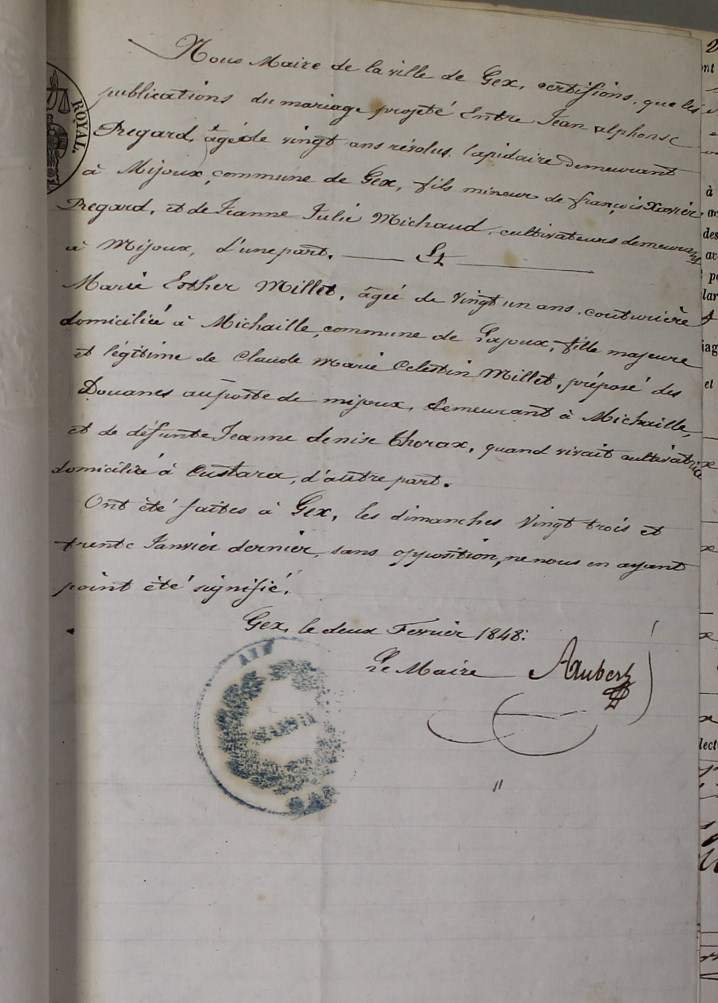 Nous Maire de la ville de Gex, certifions, que les
publications du mariage projeté Entre Jean alphonse
Regard, âgé de vingt ans résolus, lapidaire demeurant
à Mijoux, commune de Gex, fils mineur de françois Xavier
Regard, et de Jeanne Julie Michaud, cultivateurs demeurant
à Mijoux, d'une part. Et
Marie Esther Millet, âgée de vingt un ans, couturière
domiciliée à Michaille, commune de Lajoux, fille majeure
et légitime de Claude Marie Célestin Millet, préposé des
Douanes au poste de mijoux, demeurant à Michaille,
et de défunte Jeanne denise quand vivait cultivatrice
domiciliée à d'autre part.
Ont été faites à Gex, les dimanches vingt trois et
trente Janvier dernier, sans opposition, ne nous en ayant
point été signifié.
Gex, le deux Fevrier 1848:
Le Maire Aubert
ROYAL.
AIN
MAIRIE
GEX